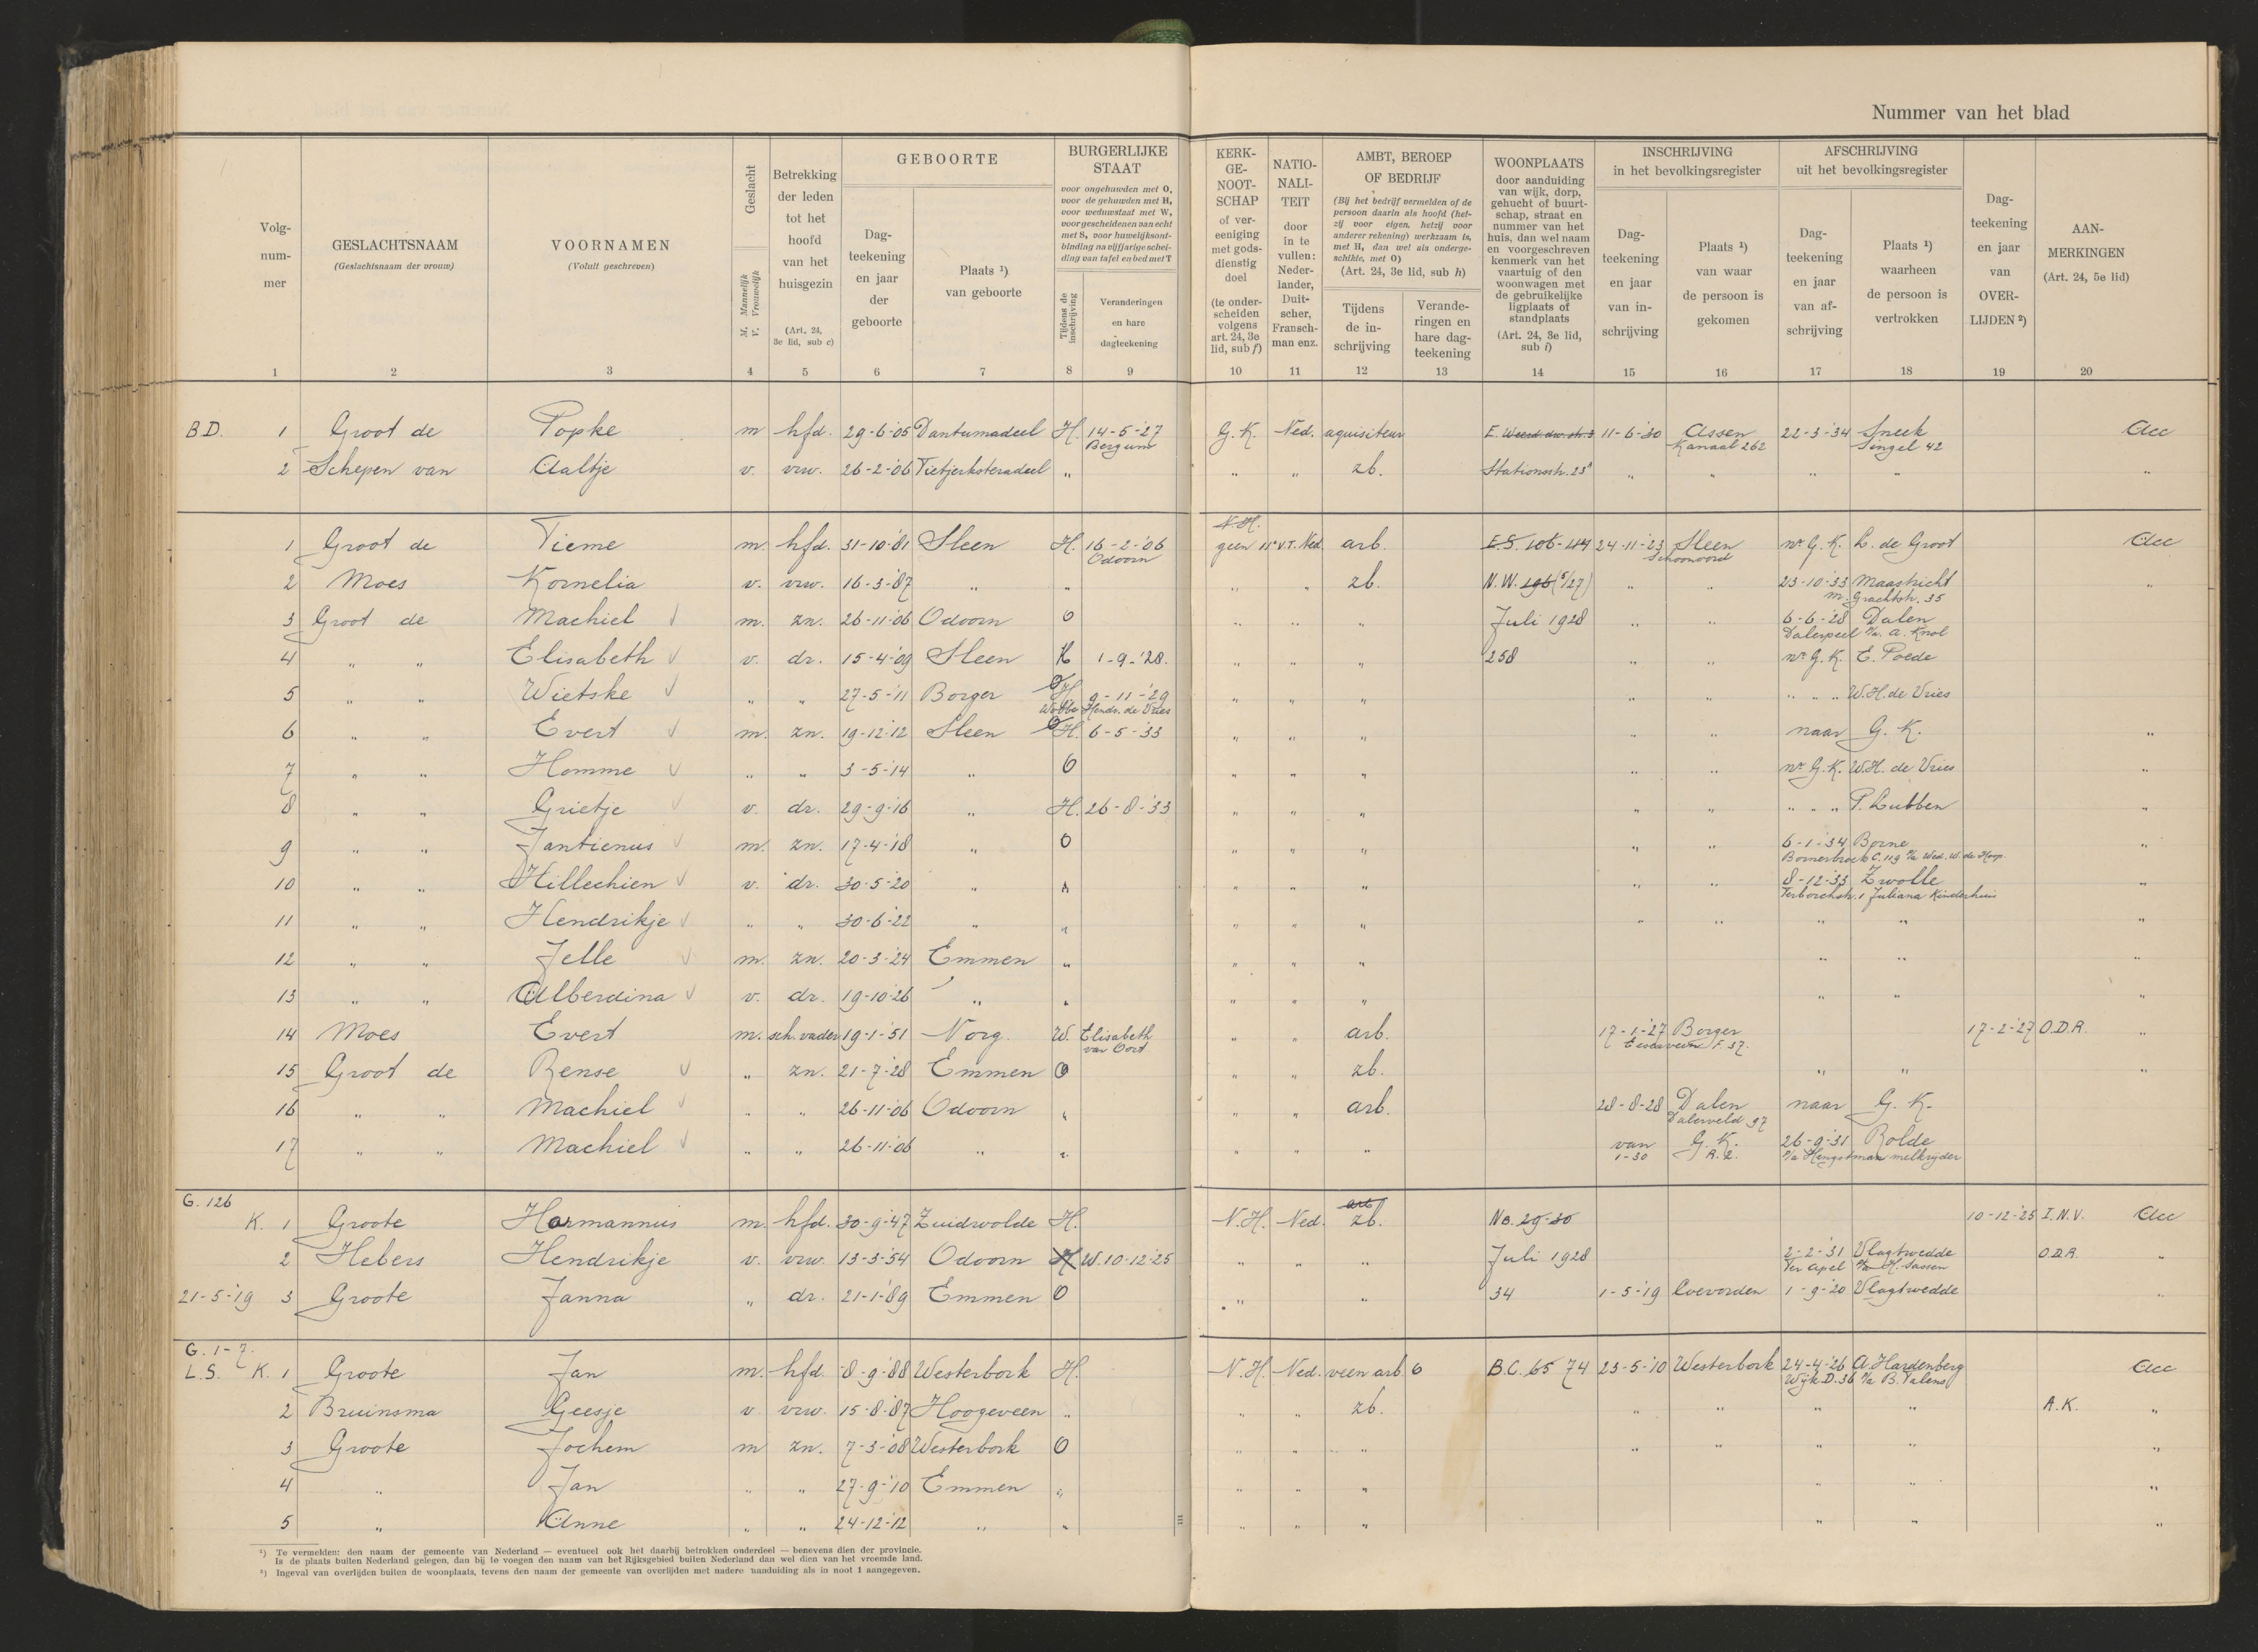 Nummer van het blad
Volg-
num-
mer
GESLACHTSNAAM
(Geslachtsnaam der vrouw)
VOORNAMEN
(Voluit geschreven)
Geslacht
M. Mannelijk
V. Vrouwelijk
Betrekking
der leden
tot het
hoofd
van het
huisgezin
(Art. 24,
3e lid, sub c)
GEBOORTE
Dag-
teekening
en jaar
der
geboorte
Plaats ¹)
van geboorte
BURGERLIJKE
STAAT
voor ongehuwden met O,
voor de gehuwden met H,
voor weduwstaat met W,
voor gescheidenen van echt
met S, voor huwelijksont-
binding na vijfjarige schei-
ding van tafel en bed met T
Tijdens de
inschrijving
Veranderingen
en hare
dagteekening
KERK-
GE-
NOOT-
SCHAP
of ver-
eeniging
met gods-
dienstig
doel
(te onder-
scheiden
volgens
art. 24, 3e
lid, sub f)
NATIO-
NALI-
TEIT
door
in te
vullen:
Neder-
lander,
Duit-
scher,
Fransch-
man enz.
AMBT, BEROEP
OF BEDRIJF
(Bij het bedrijf vermelden of de
persoon daarin als hoofd (het-
zij voor eigen, hetzij voor
anderer rekening) werkzaam is,
met H, dan wel als onderge-
schikte, met O)
(Art. 24, 3e lid, sub h)
Tijdens
de in-
schrijving
Verande-
ringen en
hare dag-
teekening
WOONPLAATS
door aanduiding
van wijk, dorp,
gehucht of buurt-
schap, straat en
nummer van het
huis, dan wel naam
en voorgeschreven
kenmerk van het
vaartuig of den
woonwagen met
de gebruikelijke
ligplaats of
standplaats
(Art. 24, 3e lid,
sub i)
INSCHRIJVING
in het bevolkingsregister
Dag-
teekening
en jaar
van in-
schrijving
Plaats ¹)
van waar
de persoon is
gekomen
AFSCHRIJVING
uit het bevolkingsregister
Dag-
teekening
en jaar
van af-
schrijving
Plaats ¹)
waarheen
de persoon is
vertrokken
Dag-
teekening
en jaar
van
OVER-
LIJDEN ²)
AAN-
MERKINGEN
(Art. 24, 5e lid)
1 2 3 4 5 6 7 8 9 10 11 12 13 14 15 16 17 18 19 20
B.D. 1 Groot de Popke m hfd. 29-6-'05 Dantumadeel H. 14-5-'27 G.K. Ned. aquisiteur 11-6-'30 Assen 22-3-'34 Sneek Acc
Bergum Kanaal 262 Singel 42
2 Schepen van Aaltje v. vrw. 26-2-'06 Tietjerksteradeel " " " zb. Stationsstr. 23 " " " " "
N.H.
1 Groot de Tieme m. hfd. 31-10-'81 Sleen H. 16-2-'06 geen Ned. arb. E.S. 24-11-'23 Sleen nr G.K. L. de Groot Acc
Odoorn Schoonoord
2 Moes Kornelia v. vrw. 16-3-'87 " " " " zb. N.W. 196 (5/27) " " 23-10-'33 Maastricht "
m. Grachtstr. 35
3 Groot de Machiel m. zn. 26-11-'06 Odoorn O " " " Juli 1928 " " 6-6-'28 Dalen
Dalerpeel p/a. A. Knol
4 " " Elisabeth v. dr. 15-4-'09 Sleen H 1-9-'28. " " " 258 " " nr G.K. E. Poede
5 " " Wietske " " 27-5-'11 Borger O H. 9-11-'29 " " " " " " " " W.H. de Vries
Wobbe Hendr. de Vries
6 " " Evert m. zn. 19-12-'12 Sleen O H. 6-5-'33 " " " " " naar G.K. "
7 " " Homme " " 3-5-'14 " O " " " " " nr G.K. W.H. de Vries "
8 " " Grietje v. dr. 29-9-'16 " H. 26-8-'33 " " " " " " " " P. Lubben "
9 " " Jantienus m. zn. 17-4-'18 " O " " " " " 6-1-'34 Borne "
Bornerbroek C. 119 p/a Wed. W. de Hoop
10 " " Hillechien v. dr. 30-5-'20 " " " " " " " 8-12-'33 Zwolle "
Terborchstr. 1 Juliana Kinderhuis
11 " " Hendrikje " " 30-6-'22 " " " " " " " " " "
12 " " Jelle m. zn. 20-3-'24 Emmen " " " " " " "
13 " " Alberdina v. dr. 19-10-'26 " " " " " " " "
14 Moes Evert m. sch. vader 19-1-'51 Norg. W. Elisabeth " " arb. 17-1-'27 Borger 17-2-'27 O.D.R. "
van Oort Eesserveen F. 37.
15 Groot de Rense " zn. 21-7-'28 Emmen O " " zb. " " "
16 " " Machiel " " 26-11-'06 Odoorn " " " arb. 28-8-28 Dalen naar G.K.
Dalerveld 37
17 " " Machiel " " 26-11-'06 " " " " " van G.K. 26-9-'31 Rolde
1-30 R.2. p/a Hengstman melkrijder
G. 126 arb.
K. 1 Groote Harmannus m. hfd. 30-9-'47 Zuidwolde H. N.H. Ned. zb. NB. 29-30 10-12-'25 I.N.V. Acc
2 Hebers Hendrikje v. vrw. 13-3-'54 Odoorn H W. 10-12-'25 " " " Juli 1928 2-2-'31 Vlagtwedde O.D.R. "
Ter Apel p/a H. Sassen
21-5-'19 3 Groote Janna " dr. 21-1-'89 Emmen O " " 34 1-5-'19 Coevorden 1-9-'20 Vlagtwedde "
G. 1-7.
L.S. K. 1 Groote Jan m. hfd. 8-9-'88 Westerbork H. N.H. Ned. veen arb. O B.C. 65 74 23-5-'10 Westerbork 24-4-'26 A. Hardenberg Acc
Wijk D. 36 p/a B. Talens
2 Bruinsma Geesje v. vrw. 15-8-'87 Hoogeveen " " " zb. " " " " A.K. "
3 Groote Jochem m zn. 7-3-'08 Westerbork O " " " " " " " "
4 " Jan " " 27-9-'10 Emmen " " " " " " "
5 " Anne " " 24-12-'12 " " " " " " " "
III
¹) Te vermelden: den naam der gemeente van Nederland — eventueel ook het daarbij betrokken onderdeel — benevens dien der provincie.
Is de plaats buiten Nederland gelegen, dan bij te voegen den naam van het Rijksgebied buiten Nederland dan wel dien van het vreemde land.
²) Ingeval van overlijden buiten de woonplaats, tevens den naam der gemeente van overlijden met nadere aanduiding als in noot 1 aangegeven.